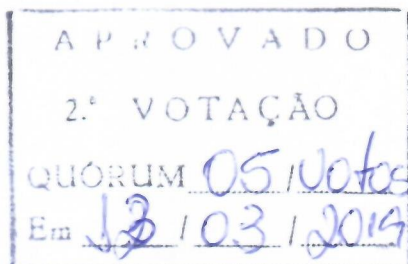 APROVADO
2.ª VOTAÇÃO
QUÓRUM 05 / Votos
Em / 03 / 2019